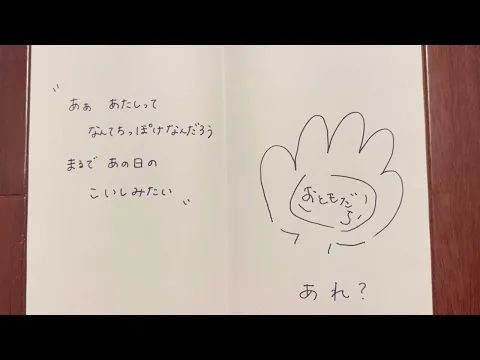 〝
あぁ あたしって
なんてちっぽけなんだろう
まるで あの日の
こいしみたい
〟
おともだ
ち
あれ?